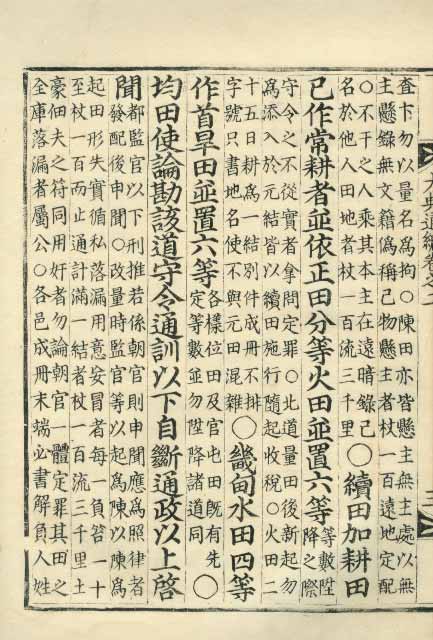 大典通編卷之二
査下勿以量名爲拘〇陳田亦皆懸主無主處以無
主懸錄無文籍僞稱己物懸主者杖一百遠地定配
〇不干之人乘其本主在遠暗錄己
名於他人田地者杖一百流三千里
〇續田加耕田
已作常耕者並依正田分等火田並置六等
等數陞
降之際
守令之不從實者拿問定罪〇北道量田後新起勿
爲添入於元結皆以續田施行隨起收稅〇火田二
十五日耕爲一結別件成冊不排
字號只書地名使不與元田混雜
〇畿甸水田四等
作首旱田並置六等
各樣位田及官屯田旣有先
定等數並勿陞降諸道同
〇
均田使論勘該道守令通訓以下自斷通政以上啓
聞
都監官以下刑推若係朝官則申聞應爲照律者
發配後申聞〇改量時監官等以起爲陳以陳爲
起田形失實循私落漏用意妄冒者每一負笞一十
至杖一百而止通計滿一結者杖一百流三千里土
豪佃夫之符同用奸者勿論朝官一體定罪其田之
全庫落漏者屬公〇各邑成冊末端必書解負人姓